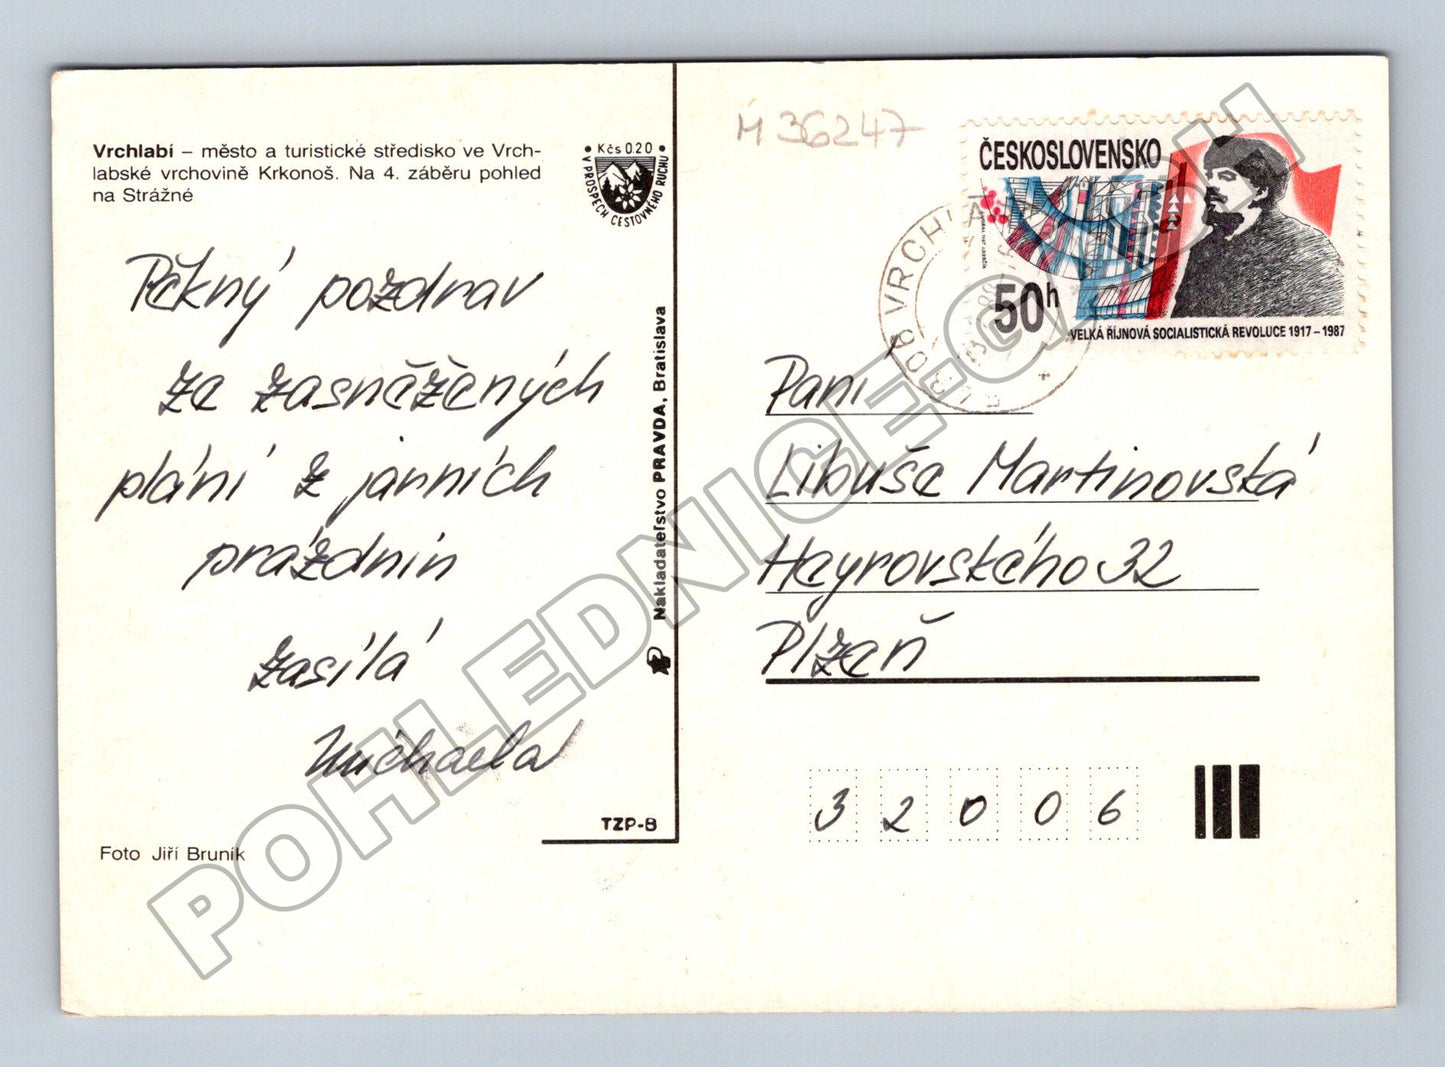 Vrchlabí – město a turistické středisko ve Vrch-
labské vrchovině Krkonoš. Na 4. záběru pohled
na Strážné
• Kčs 0.20 •
V PROSPECH CESTOVNÉHO RUCHU
Pěkný pozdrav
ze zasněžených
plání z jarních
prázdnin
zasílá
Michaela
Foto Jiří Bruník
TZP-B
Nakladateľstvo PRAVDA, Bratislava
M 36247
ČESKOSLOVENSKO
50h
VELKÁ ŘÍJNOVÁ SOCIALISTICKÁ REVOLUCE 1917–1987
VRCHLA
Paní
Libuše Martinovská
Heyrovského 32
Plzeň
32006
POHLEDNICE.GLAD.H